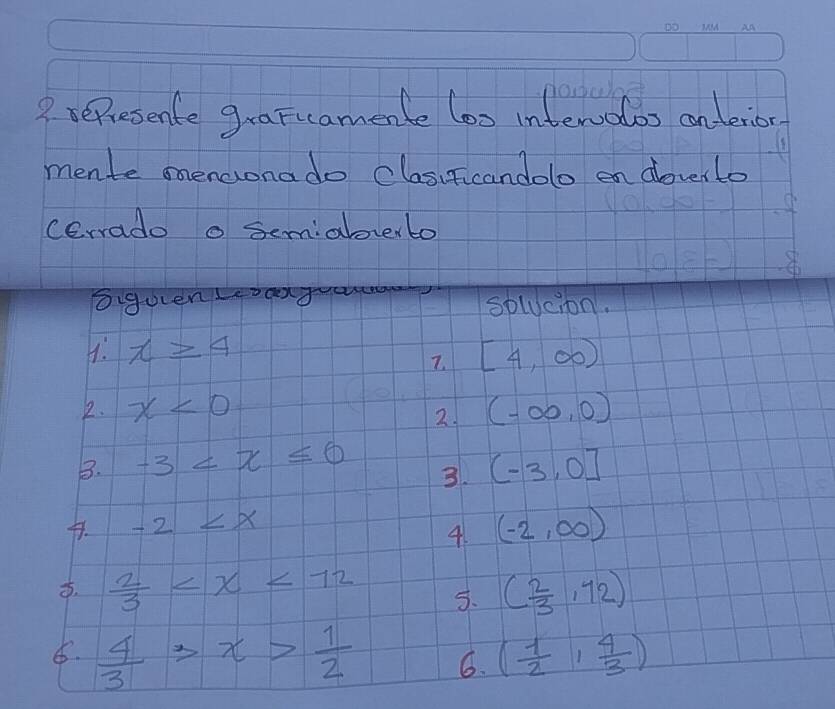 DD MM AA
2. represente graficamente los intervalos anterior-
mente mencionado clasificandolo en abierto
cerrado o semiabierto
siguientes
solucion.
1. x ≥ 4
1. [4, ∞)
2. x < 0
2. (-∞, 0)
3. -3 < x ≤ 0
3. (-3, 0]
4. -2 < x
4. (-2, ∞)
5. 2/3 < x < 12
5. (2/3, 12)
6. 4/3 > x > 1/2
6. (1/2, 4/3)